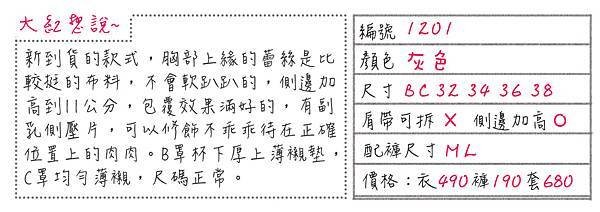 大紅想說~
新到貨的款式，胸部上緣的蕾絲是比
較挺的布料，不會軟趴趴的，側邊加
高到11公分，包覆效果滿好的，有副
乳側壓片，可以修飾不乖乖待在正確
位置上的肉肉。B罩杯下厚上薄襯墊，
C罩均勻薄襯，尺碼正常。
編號 1201
顏色 灰色
尺寸 BC 32 34 36 38
肩帶可拆 X 側邊加高 O
配褲尺寸 ML
價格：衣490褲190套680